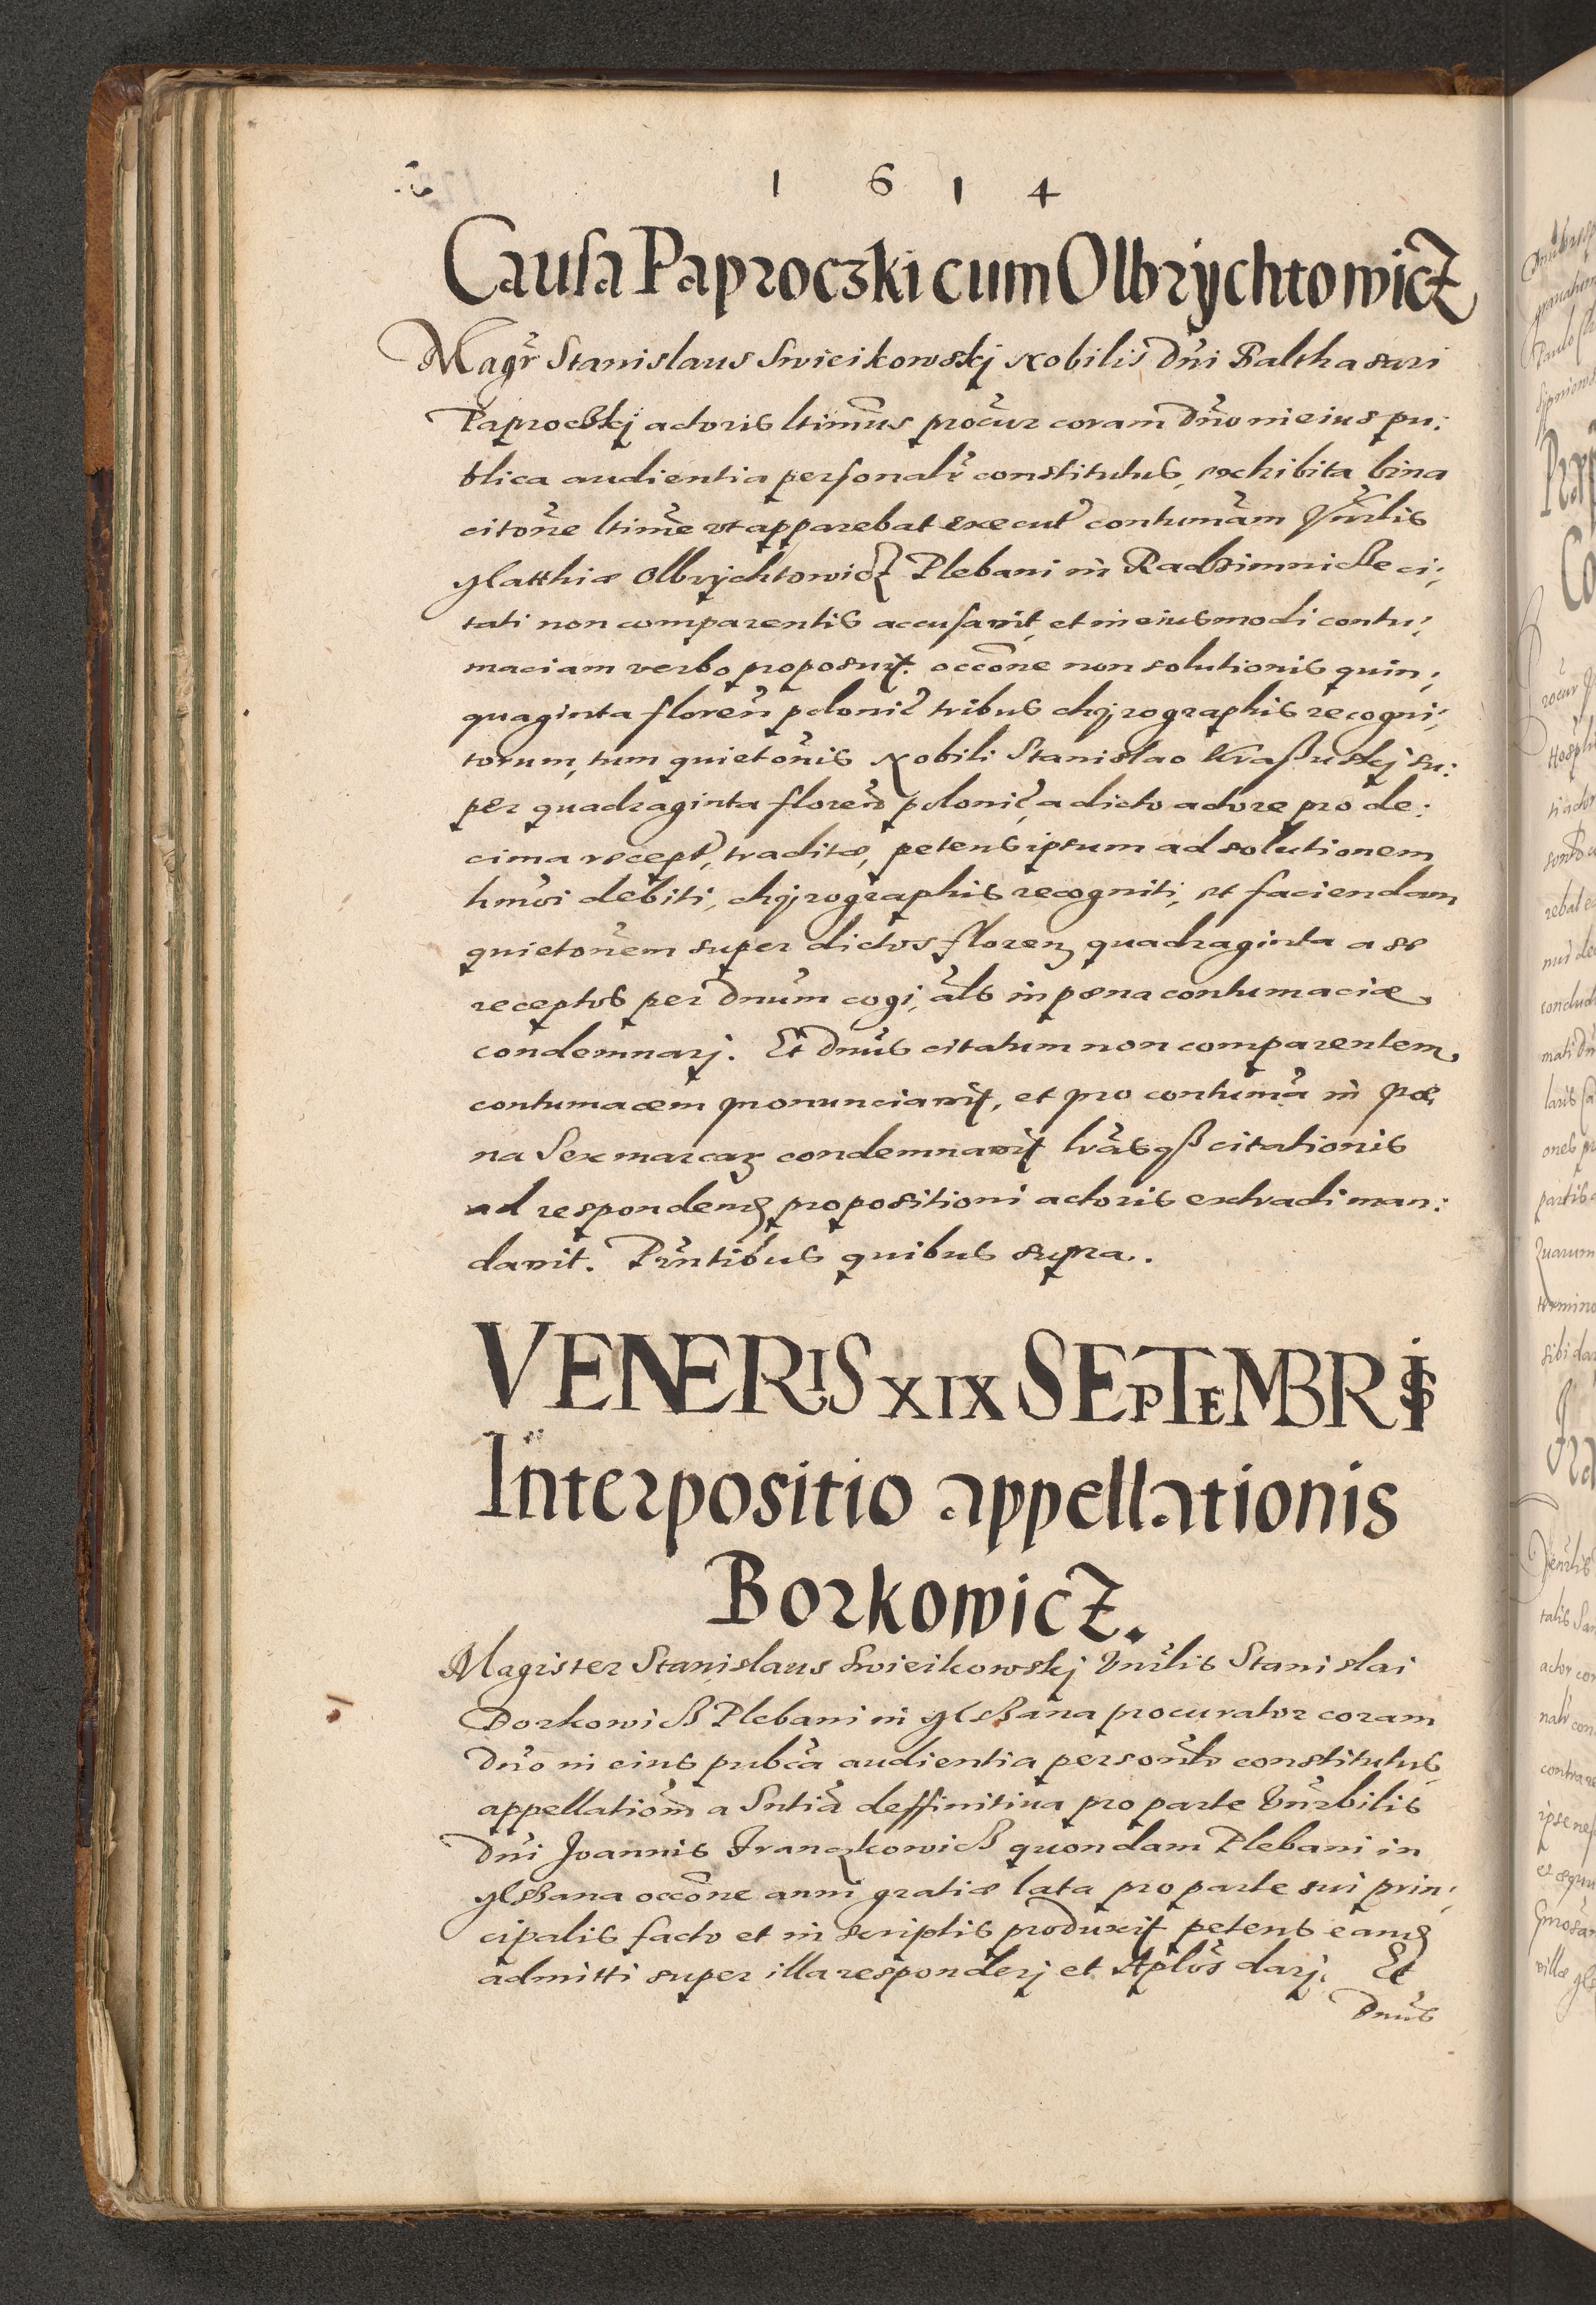 1 6 1 4
Causa Paproczki cum Olbrychtowicz
Magr̃ Stanislaus Swieikowskj Nobilis Dñi Balthasari
Paproczkj actoris ltimus procur coram Dño in eius pu:
blica audientia personalr̃ constitutus, exhibita bina
citone ltime ut apparebat execut contumam Vnrlis
Matthiæ Olbrychtowicz Plebani in Radzimnicze ci:
tati non comparentis accusavit, et in eiusmodi contu:
maciam verbo proposuit. occone non solutionis quin:
quaginta floren polonic tribus chyrographis recogni:
torum, tum quietonis Nobili Stanislao Kraßuskj su:
per quadraginta floren polonic, a dicto actore pro de:
cima recept, traditæ, petens ipsum ad solutionem
hmoi debiti, chyrographis recogniti, et faciendam
quietonem super dictos floren quadraginta a se
receptos per Dnum cogi, als in pœna contumaciæ
condemnarj. Et Dnus citatum non comparentem,
contumacem pronunciavit, et pro contuma in pœ
na Sex marcar condemnavit lras citationis
ad respondend propositioni actoris extradi man:
davit. Pñtibus quibus supra.
VENERIS XIX SEPTEMBRIS
Interpositio appellationis
Borkowicz.
Magister Stanislaus Swieikowskj Vnrlis Stanislai
Borkowicz Plebani in Mszana procurator coram
Dño in eius pubca audientia personlr constitutus,
appellationem a Sntia deffinitiua pro parte Vnrbilis
Dñi Joannis Franczkowicz quondam Plebani in
Mszana occone anni gratiæ lata pro parte sui prin:
cipalis facto et in scriptis produxit petens eand
admitti super illa responderj et Aplos darj. Et
Dnus